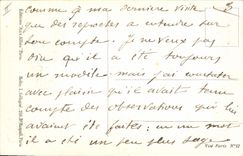 comme à ma dernière visite
que des reproches a entendre sur
son compte. Je ne veux pas
dire qu'il a été toujours
un modèle mais j'ai constater
avec plaisir qu'il avait tenu
compte des observations qui lui
avaient été faites; en un mot
il a été un peu plus
Visé Paris N°